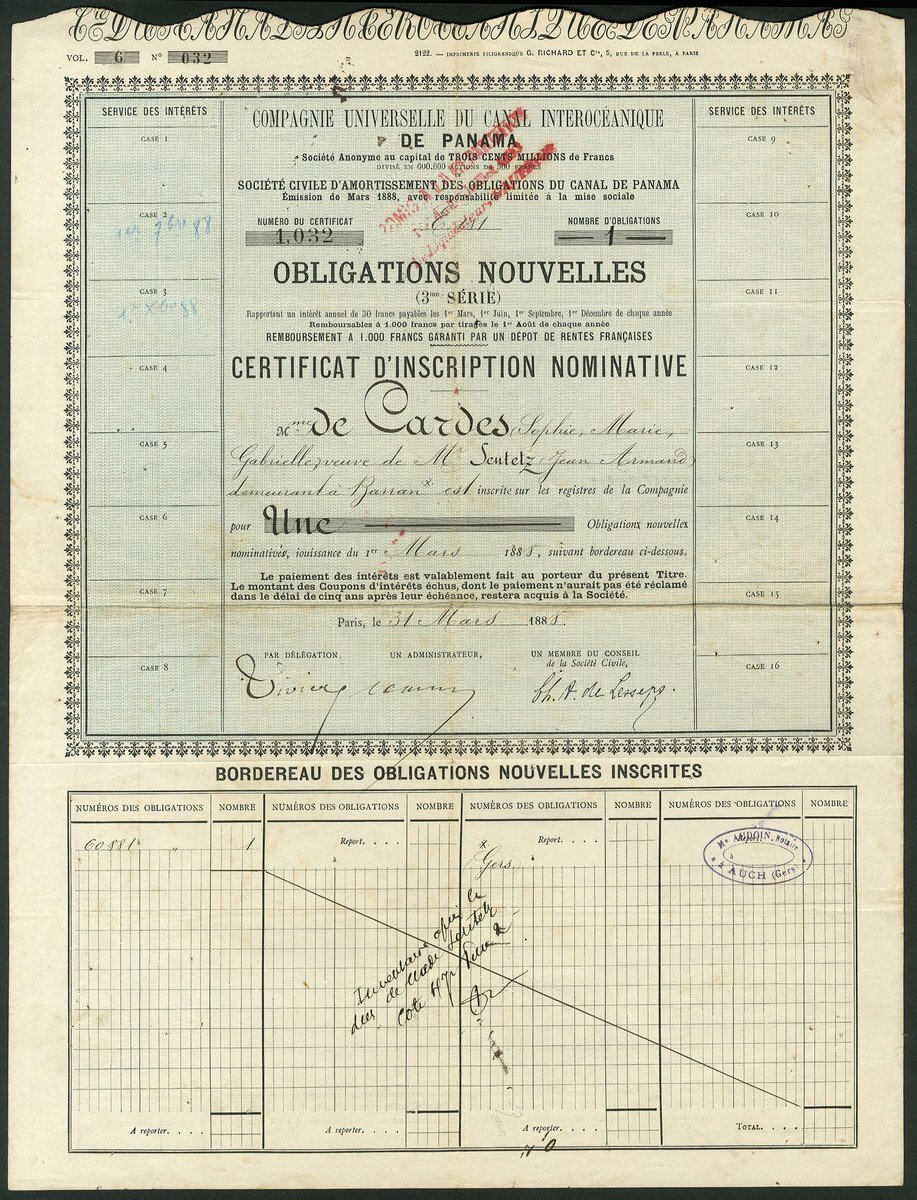 Cie DU CANAL INTEROCÉANIQUE DE PANAMA
VOL. 6 No 032
2122. — IMPRIMERIE FILIGRANIQUE G. RICHARD ET Cie, 5, RUE DE LA PERLE, A PARIS
SERVICE DES INTÉRÊTS
CASE 1
CASE 2
CASE 3
CASE 4
CASE 5
CASE 6
CASE 7
CASE 8
COMPAGNIE UNIVERSELLE DU CANAL INTEROCÉANIQUE
DE PANAMA
Société Anonyme au capital de TROIS CENTS MILLIONS de Francs
DIVISÉ EN 600.000 ACTIONS DE 500 FRANCS
SOCIÉTÉ CIVILE D'AMORTISSEMENT DES OBLIGATIONS DU CANAL DE PANAMA
Émission de Mars 1888, avec responsabilité limitée à la mise sociale
NUMÉRO DU CERTIFICAT
NOMBRE D'OBLIGATIONS
1,032
1
OBLIGATIONS NOUVELLES
(3me SÉRIE)
Rapportant un intérêt annuel de 30 francs payables les 1er Mars, 1er Juin, 1er Septembre, 1er Décembre de chaque année
Remboursables à 1.000 francs par tirages le 1er Août de chaque année
REMBOURSEMENT A 1.000 FRANCS GARANTI PAR UN DÉPOT DE RENTES FRANÇAISES
CERTIFICAT D'INSCRIPTION NOMINATIVE
Mme de Cardes (Sophie, Marie,
Gabrielle) veuve de Mr Sentetz (Jean Armand)
demeurant à Barran x est inscrite sur les registres de la Compagnie
pour Une Obligations nouvelles
nominatives, jouissance du 1er Mars 1888, suivant bordereau ci-dessous.
Le paiement des intérêts est valablement fait au porteur du présent Titre.
Le montant des Coupons d'intérêts échus, dont le paiement n'aurait pas été réclamé
dans le délai de cinq ans après leur échéance, restera acquis à la Société.
Paris, le 31 Mars 1888.
PAR DÉLÉGATION,
UN ADMINISTRATEUR,
UN MEMBRE DU CONSEIL
de la Société Civile,
Ch. A de Lesseps.
SERVICE DES INTÉRÊTS
CASE 9
CASE 10
CASE 11
CASE 12
CASE 13
CASE 14
CASE 15
CASE 16
BORDEREAU DES OBLIGATIONS NOUVELLES INSCRITES
NUMÉROS DES OBLIGATIONS NOMBRE NUMÉROS DES OBLIGATIONS NOMBRE NUMÉROS DES OBLIGATIONS NOMBRE NUMÉROS DES OBLIGATIONS NOMBRE
60881 à " 1
Report. . . .
à
Report. . . .
à
x Gers.
Me AUDOIN, Notaire
à AUCH (Gers)
Inventaire après le
décès de Made Sentetz
Cote 47
A reporter. . . .
A reporter. . . .
A reporter. . . .
TOTAL. . . .